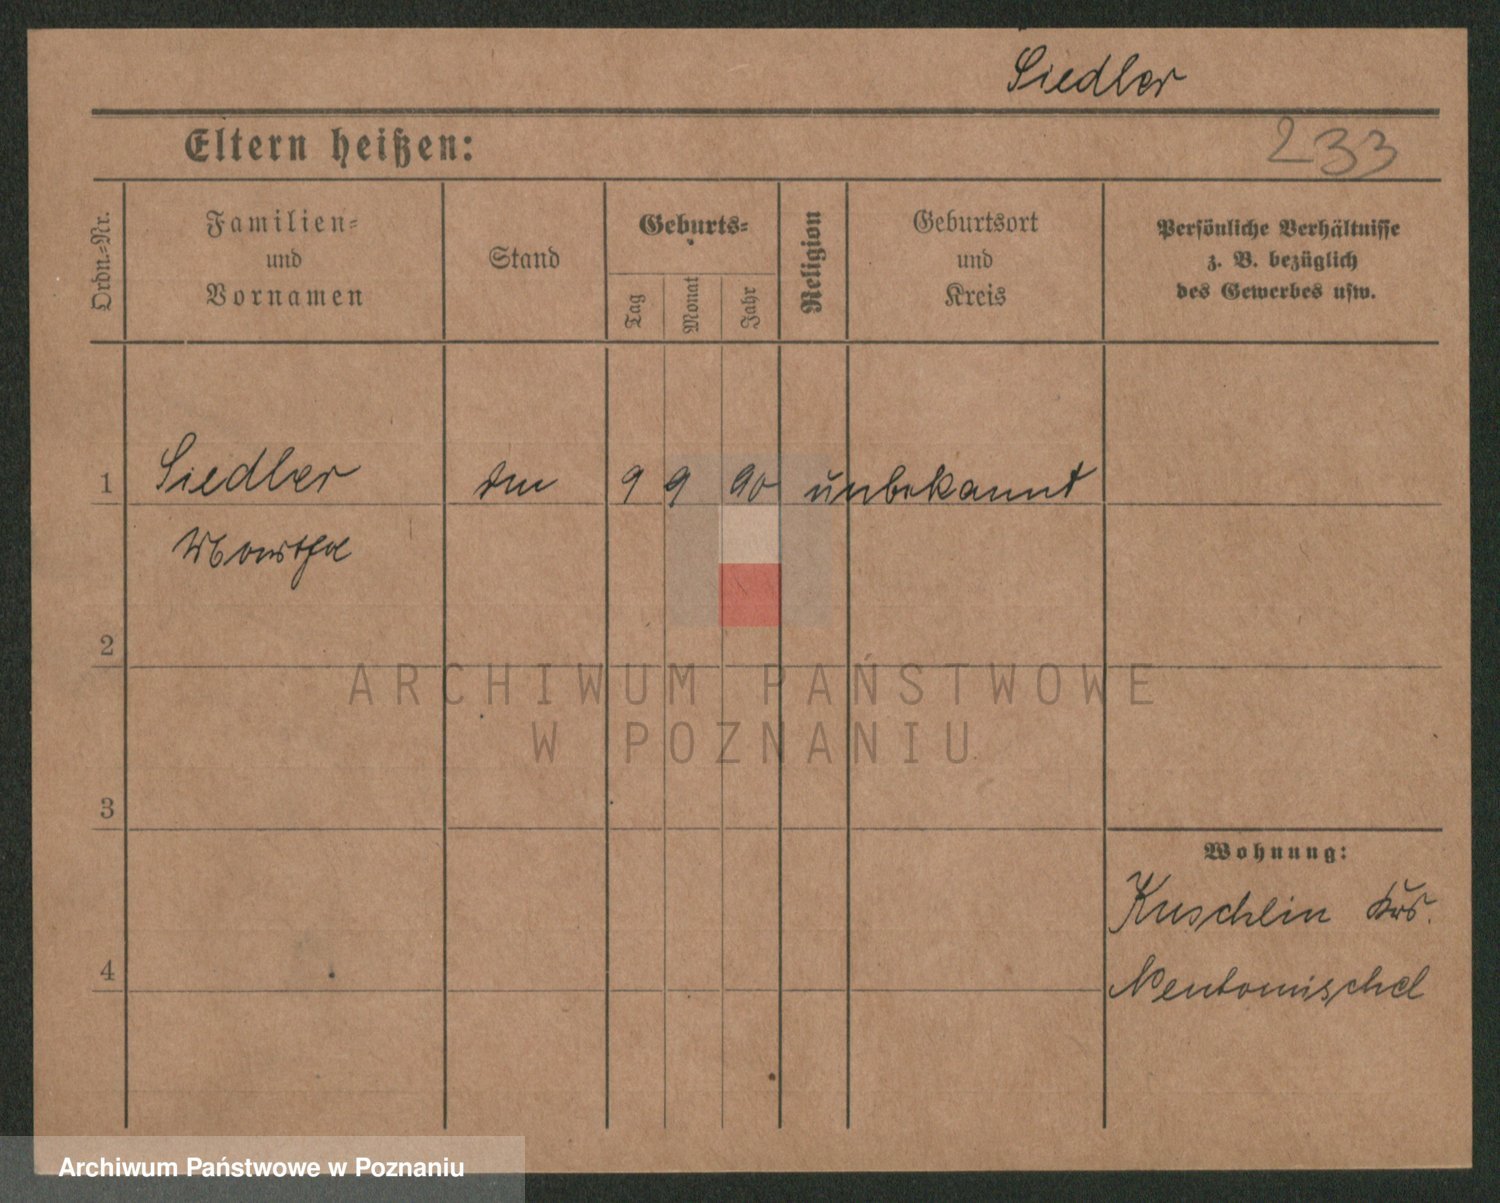 Siedler
Eltern heißen:
233
Ordn.-Nr.
Familien-
und
Vornamen
Stand
Geburts-
Tag
Monat
Jahr
Religion
Geburtsort
und
Kreis
Persönliche Verhältnisse
z. B. bezüglich
des Gewerbes usw.
1
Siedler
9 9 90 unbekannt
Martha
2
ARCHIWUM PAŃSTWOWE
W POZNANIU
3
Wohnung:
Kuschlin Krs.
4
Neutomischel
Archiwum Państwowe w Poznaniu